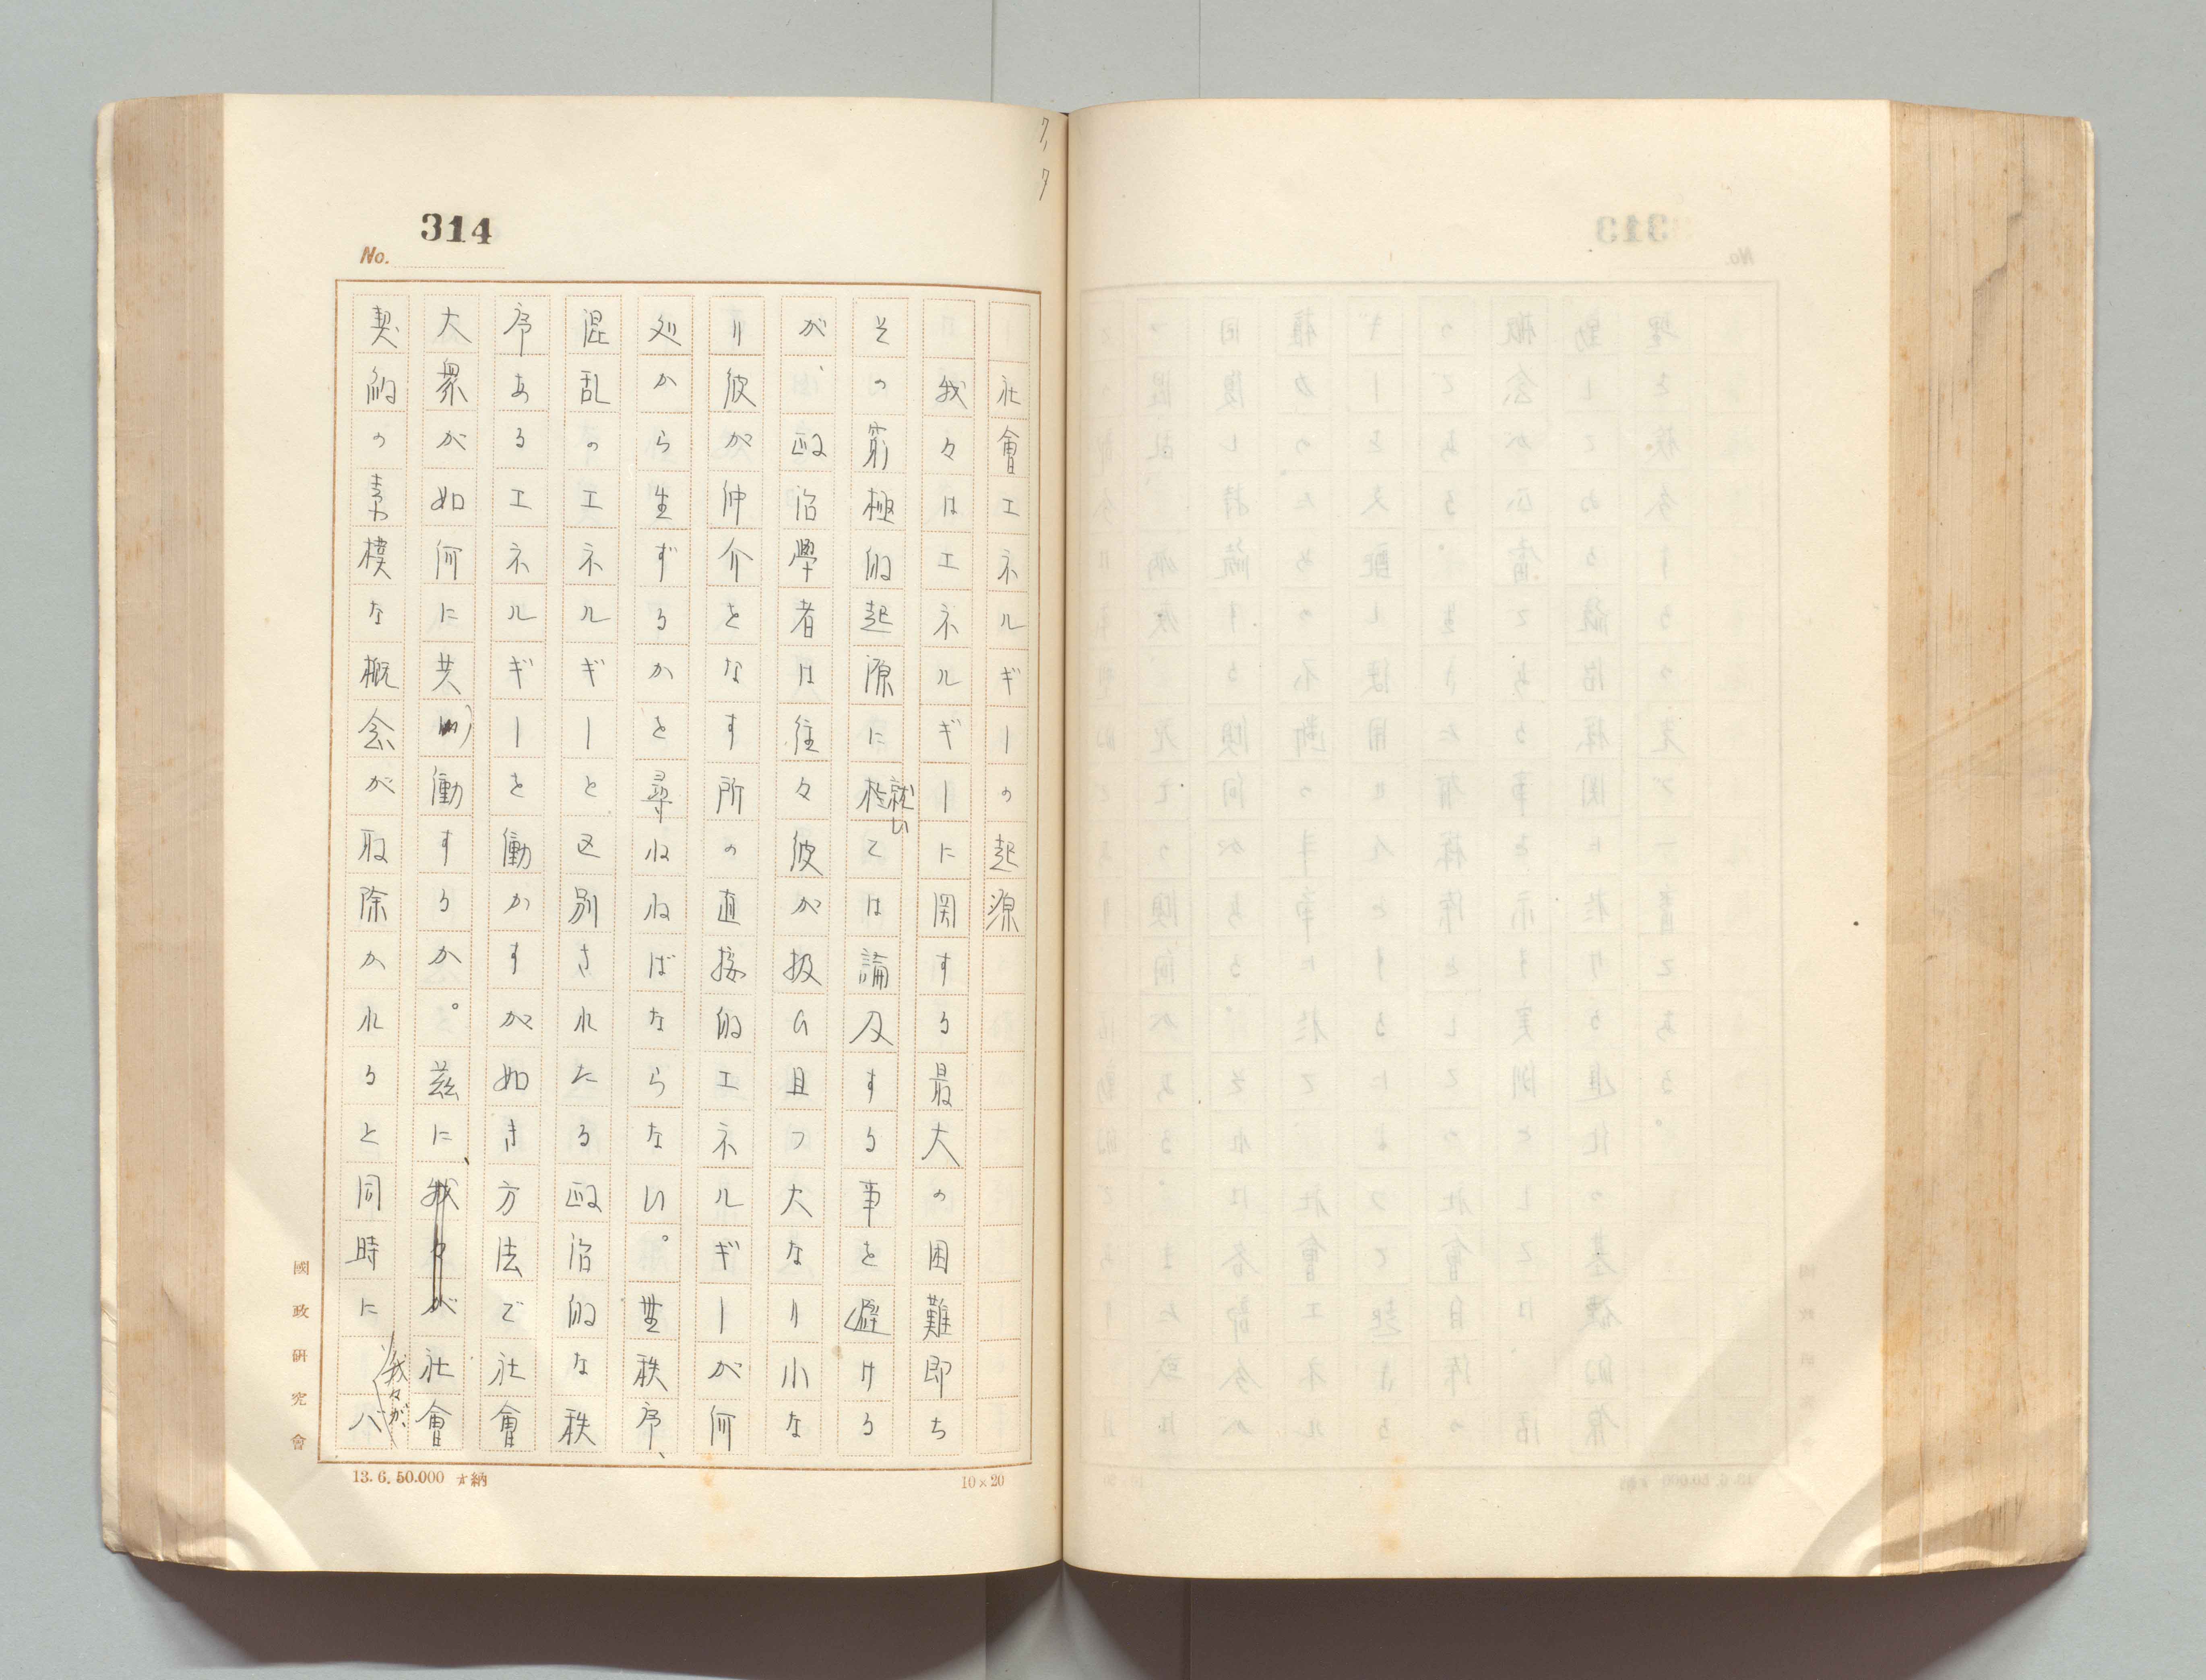 314
No.
社會エネルギーの起源
我々はエネルギーに関する最大の困難即ち
その窮極的起源に就いては論及する事を避ける
が、政治學者は往々彼が扱ひ且つ大なり小な
り彼が仲介をなす所の直接的エネルギーが何
処から生ずるかを尋ねねばならない。無秩序、
混乱のエネルギーと区別されたる政治的な秩
序あるエネルギーを働かすが如き方法で社會
大衆が如何に共働するか。茲に、社會
契約の素樸な概念が取除かれると同時に我々が、八
國政研究會
13.6.50.000 納
10×20